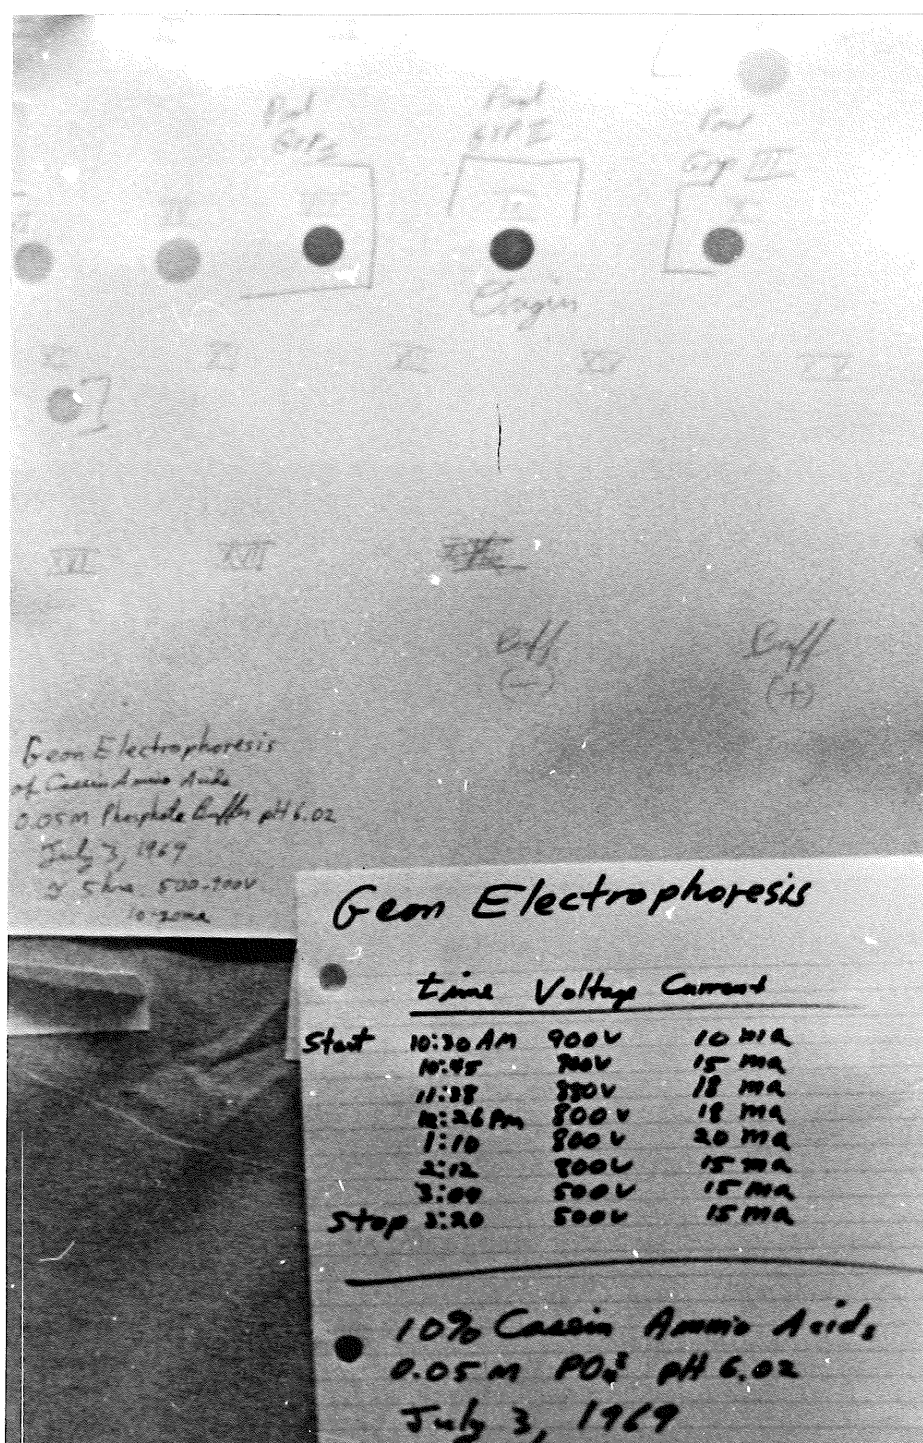 Pool
Grp I
Pool
Grp II
Pool
Grp III
VI
IX
X
Origin
XI
XV
XVI
XVII
Buff
(-)
Buff
(+)
Geon Electrophoresis
of Casein Amino Acids
0.05M Phosphate Buffer pH 6.02
July 3, 1969
5 hrs. 500-900V
10-20ma
Geon Electrophoresis
time Voltage Current
Start 10:30 AM 900v 10 ma
10:45 900v 15 ma
11:38 880v 18 ma
12:26 Pm 800v 18 ma
1:10 800v 20 ma
2:12 800v 15 ma
3:09 500v 15 ma
Stop 3:20 500v 15 ma
10% Casein Amino Acids
0.05 M PO₄ pH 6.02
July 3, 1969